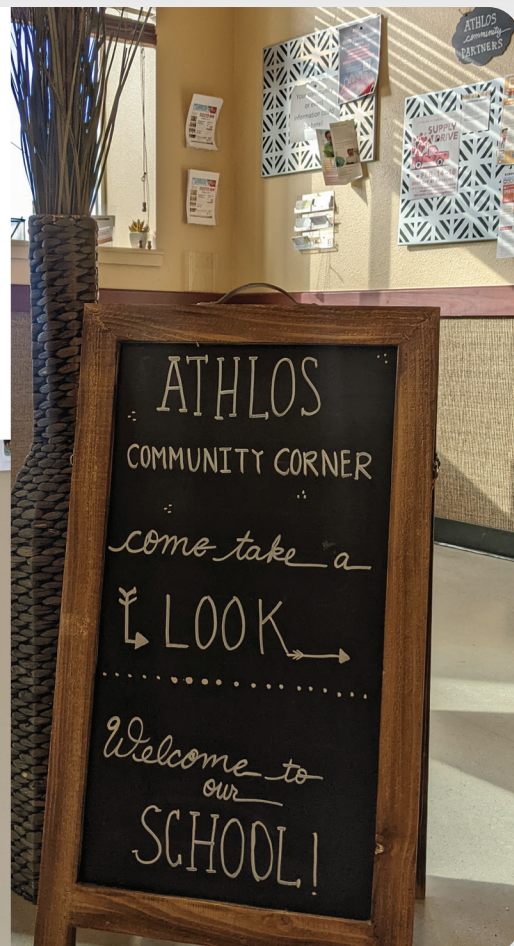 ATHLOS
community
PARTNERS
SUPPLY
DRIVE
ATHLOS
COMMUNITY CORNER
come take a
LOOK
Welcome to
our
SCHOOL!